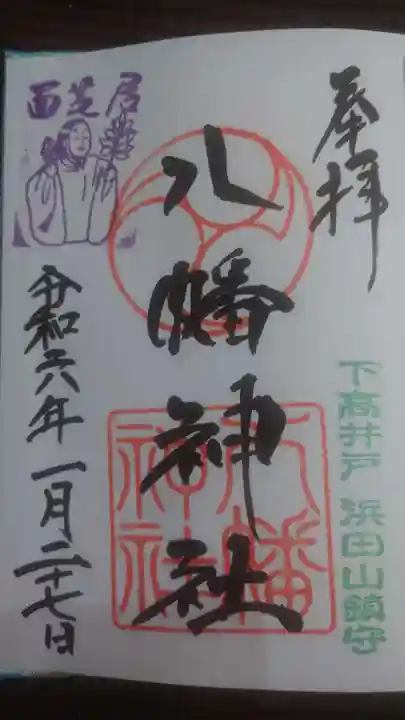 奉拝
下高井戸 浜田山鎮守
八幡神社
八幡神社
面芝居
令和六年一月二十七日